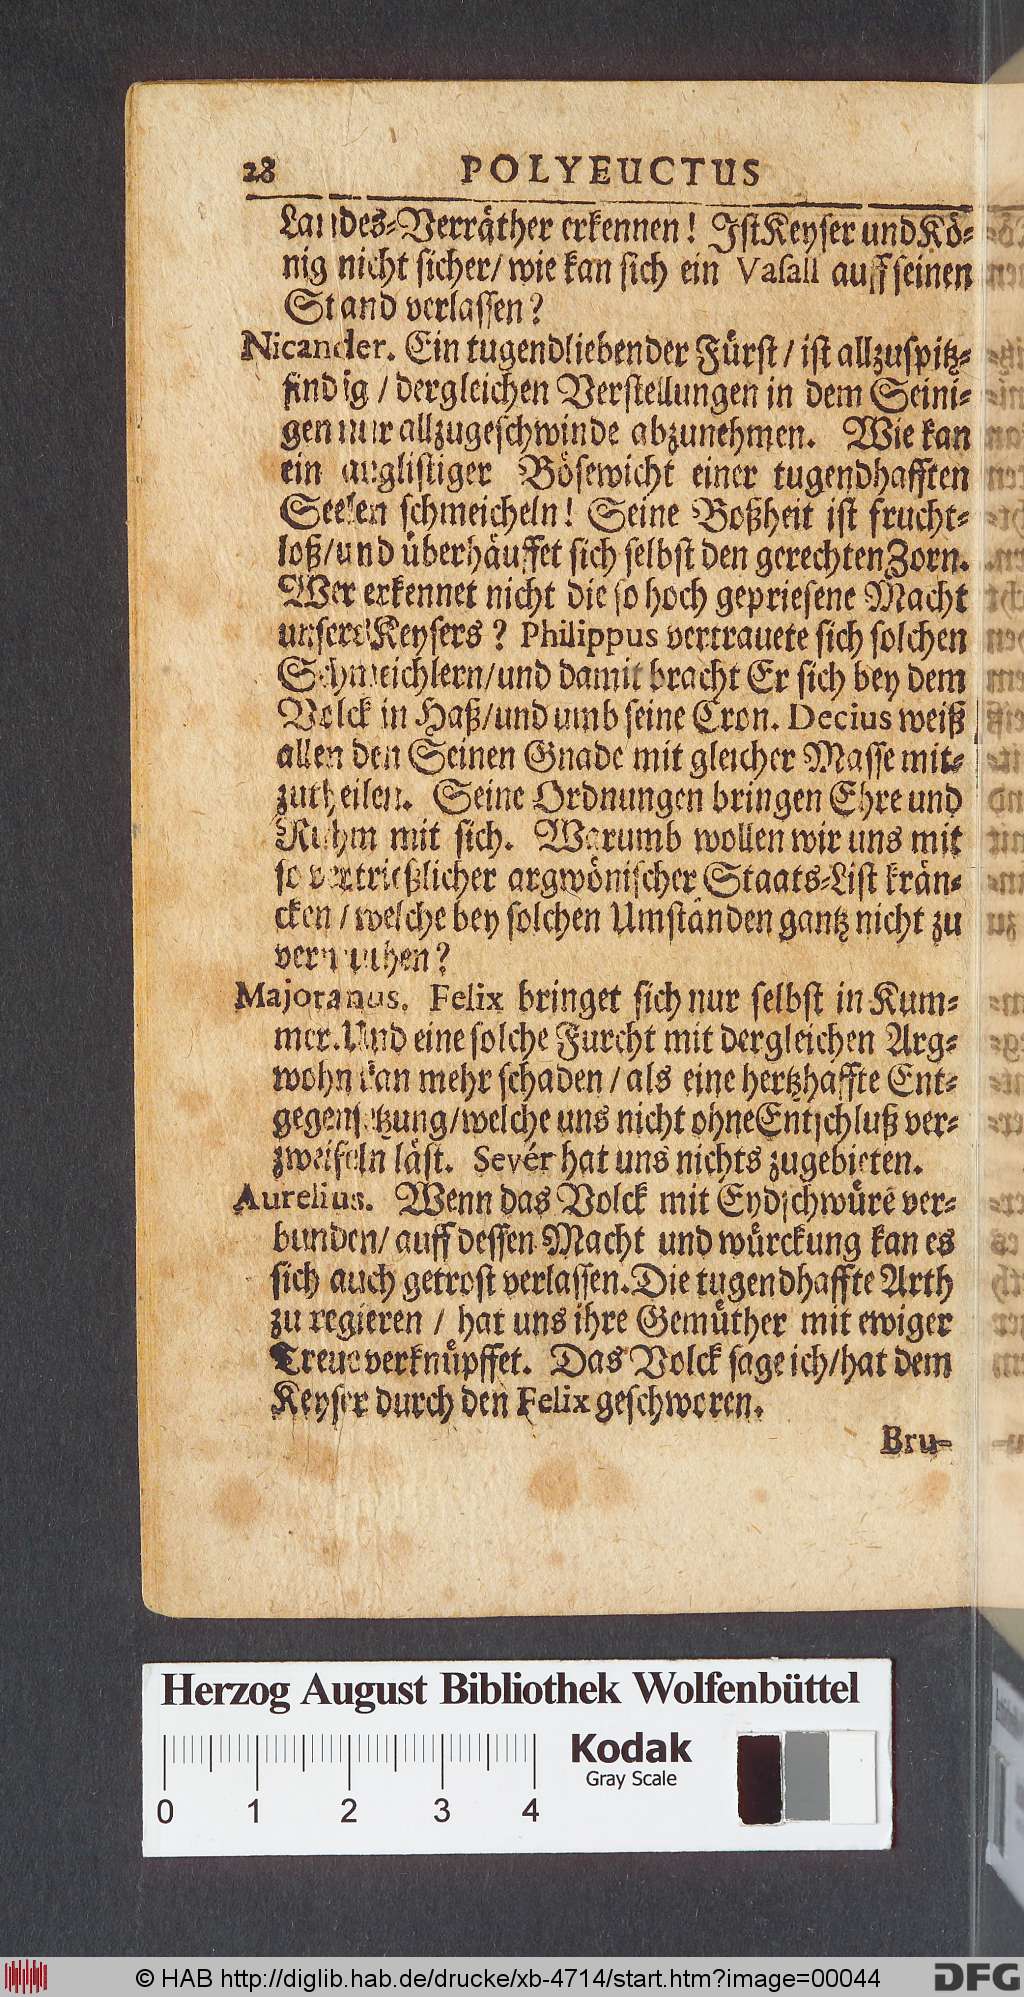 28 POLYEUCTUS
Landes-Verräther erkennen! Ist Keyser und Kö-
nig nicht sicher/ wie kan sich ein Vasall auff seinen
Stand verlassen?
Nicander. Ein tugendliebender Fürst / ist allzuspitz-
findig / dergleichen Verstellungen in dem Seini-
gen nur allzugeschwinde abzunehmen. Wie kan
ein arglistiger Bösewicht einer tugendhafften
Seelen schmeicheln! Seine Boßheit ist frucht-
loß/und überhäuffet sich selbst den gerechten Zorn.
Wer erkennet nicht die so hoch gepriesene Macht
unsers Keysers? Philippus vertrauete sich solchen
Schmeichlern/und damit bracht Er sich bey dem
Volck in Haß/und umb seine Cron. Decius weiß
allen den Seinen Gnade mit gleicher Masse mit-
zutheilen. Seine Ordnungen bringen Ehre und
Ruhm mit sich. Warumb wollen wir uns mit
so vertrießlicher argwönischer Staats-List krän-
cken / welche bey solchen Umständen gantz nicht zu
vermuthen?
Majoranus. Felix bringet sich nur selbst in Kum-
mer. Und eine solche Furcht mit dergleichen Arg-
wohn kan mehr schaden / als eine hertzhaffte Ent-
gegensetzung/welche uns nicht ohne Entschluß ver-
zweifeln läst. Sevér hat uns nichts zugebieten.
Aurelius. Wenn das Volck mit Eydschwüre ver-
bunden/ auff dessen Macht und würckung kan es
sich auch getrost verlassen. Die tugendhaffte Arth
zu regieren / hat uns ihre Gemüther mit ewiger
Treue verknüpffet. Das Volck sage ich/hat dem
Keyser durch den Felix geschworen.
Bru-
Herzog August Bibliothek Wolfenbüttel
Kodak
Gray Scale
0 1 2 3 4
© HAB http://diglib.hab.de/drucke/xb-4714/start.htm?image=00044
DFG